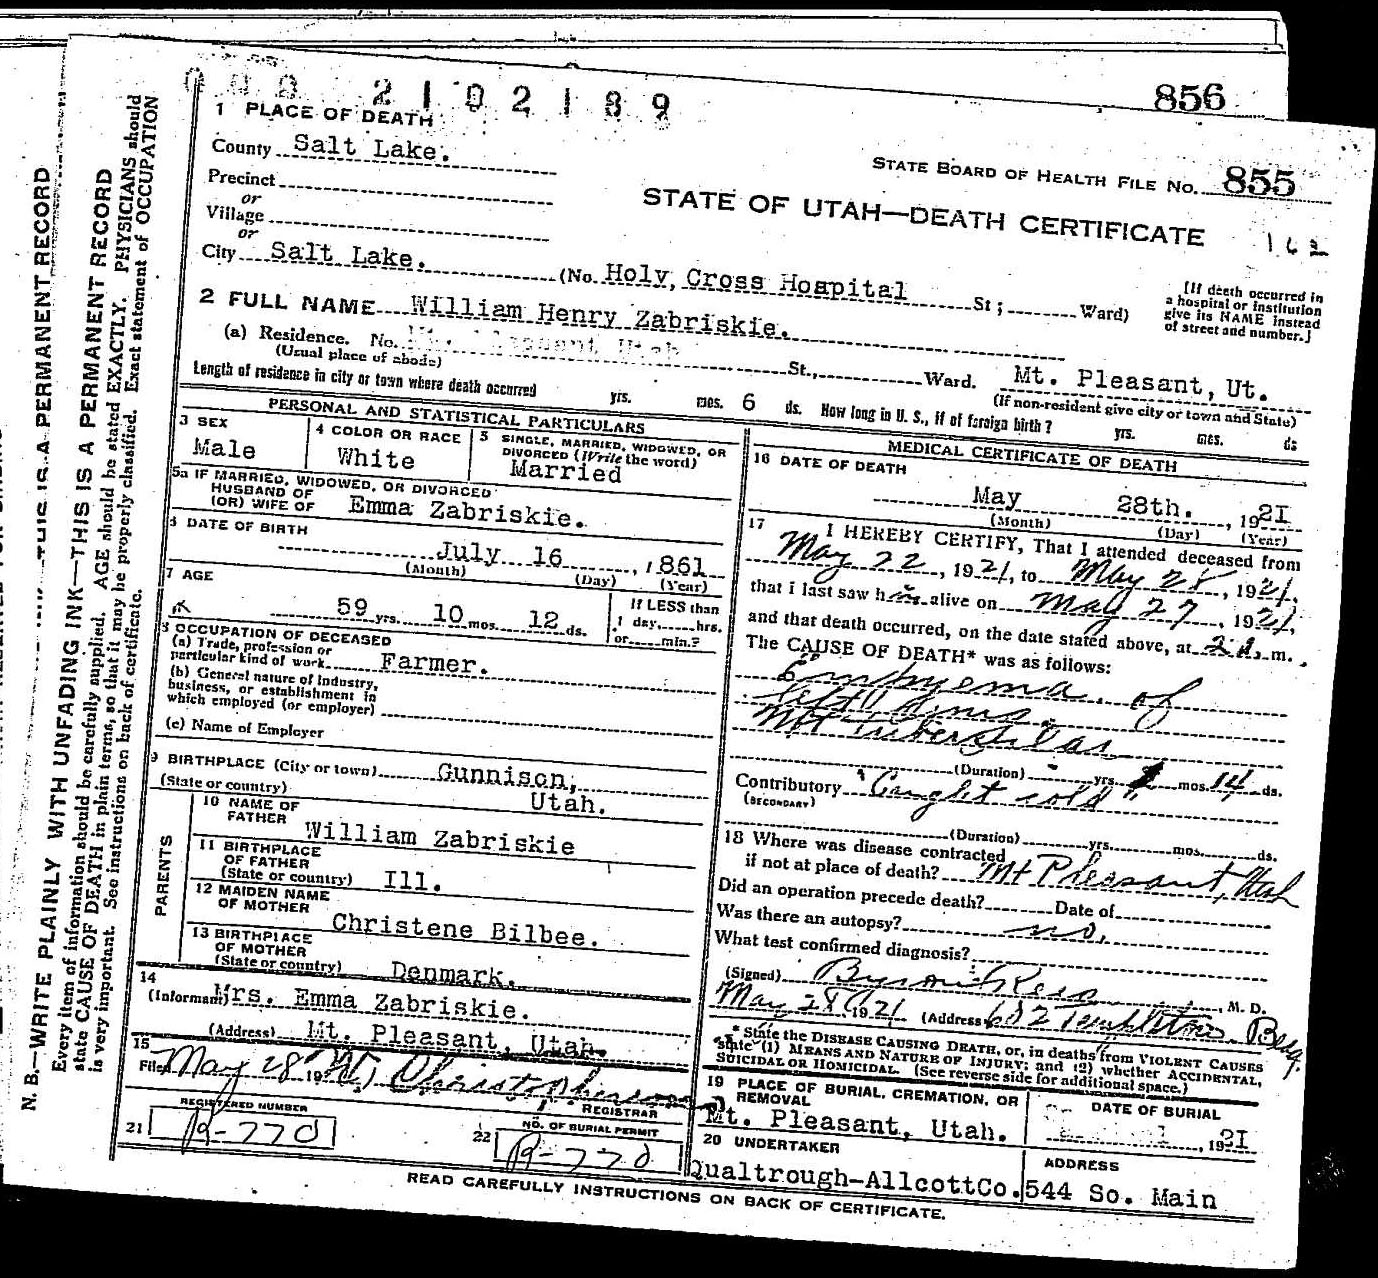 856
2102189
1 PLACE OF DEATH
County Salt Lake.
STATE BOARD OF HEALTH FILE NO. 855
Precinct
or
Village
or
STATE OF UTAH—DEATH CERTIFICATE
City Salt Lake. (No. Holy Cross Hospital St; Ward)
[If death occurred in
a hospital or institution
give its NAME instead
of street and number.]
2 FULL NAME William Henry Zabriskie.
(a) Residence. No. Mt. Pleasant Utah St., Ward. Mt. Pleasant, Ut.
(Usual place of abode) (If non-resident give city or town and State)
Length of residence in city or town where death occurred yrs. mos. 6 ds. How long in U. S., if of foreign birth? yrs. mos. ds
PERSONAL AND STATISTICAL PARTICULARS
3 SEX
Male
4 COLOR OR RACE
White
5 SINGLE, MARRIED, WIDOWED, OR
DIVORCED (Write the word)
Married
5a IF MARRIED, WIDOWED, OR DIVORCED
HUSBAND OF
(OR) WIFE OF Emma Zabriskie.
6 DATE OF BIRTH
July 16, 1861
(Month) (Day) (Year)
7 AGE
59 yrs. 10 mos. 12 ds.
If LESS than
1 day, hrs.
or min.?
8 OCCUPATION OF DECEASED
(a) Trade, profession or
particular kind of work Farmer.
(b) General nature of industry,
business, or establishment in
which employed (or employer)
(c) Name of Employer
9 BIRTHPLACE (City or town) Gunnison,
(State or country) Utah.
PARENTS
10 NAME OF
FATHER William Zabriskie
11 BIRTHPLACE
OF FATHER
(State or country) Ill.
12 MAIDEN NAME
OF MOTHER Christene Bilbee.
13 BIRTHPLACE
OF MOTHER
(State or country) Denmark.
14
(Informant) Mrs. Emma Zabriskie.
(Address) Mt. Pleasant, Utah.
15
Filed May 28 192
REGISTRAR
REGISTERED NUMBER
21 R-770
NO. OF BURIAL PERMIT
22 R-770
MEDICAL CERTIFICATE OF DEATH
16 DATE OF DEATH
May 28th., 1921
(Month) (Day) (Year)
17 I HEREBY CERTIFY, That I attended deceased from
May 22, 1921, to May 28, 1921.
that i last saw him alive on May 27, 1921,
and that death occurred, on the date stated above, at 2 a. m.
The CAUSE OF DEATH* was as follows:
Empyema of
left
Not Tubercular
(Duration) yrs. mos. 14 ds.
Contributory "Caught cold"
(SECONDARY)
(Duration) yrs. mos. ds.
18 Where was disease contracted
if not at place of death? Mt Pleasant, Utah
Did an operation precede death? Date of
Was there an autopsy? no.
What test confirmed diagnosis?
(Signed) Byron Rees M. D.
May 28, 1921 (Address) 682 Templeton Bldg.
* State the DISEASE CAUSING DEATH, or, in deaths from VIOLENT CAUSES
state (1) MEANS AND NATURE OF INJURY; and (2) whether ACCIDENTAL,
SUICIDAL OR HOMICIDAL. (See reverse side for additional space.)
19 PLACE OF BURIAL, CREMATION, OR
REMOVAL
Mt. Pleasant, Utah.
DATE OF BURIAL
1921
20 UNDERTAKER
Qualtrough-AllcottCo.
ADDRESS
544 So. Main
READ CAREFULLY INSTRUCTIONS ON BACK OF CERTIFICATE.
N. B.—WRITE PLAINLY WITH UNFADING INK—THIS IS A PERMANENT RECORD
Every item of information should be carefully supplied. AGE should be stated EXACTLY. PHYSICIANS should
state CAUSE OF DEATH in plain terms, so that it may be properly classified. Exact statement of OCCUPATION
is very important. See instructions on back of certificate.
THIS IS A PERMANENT RECORD